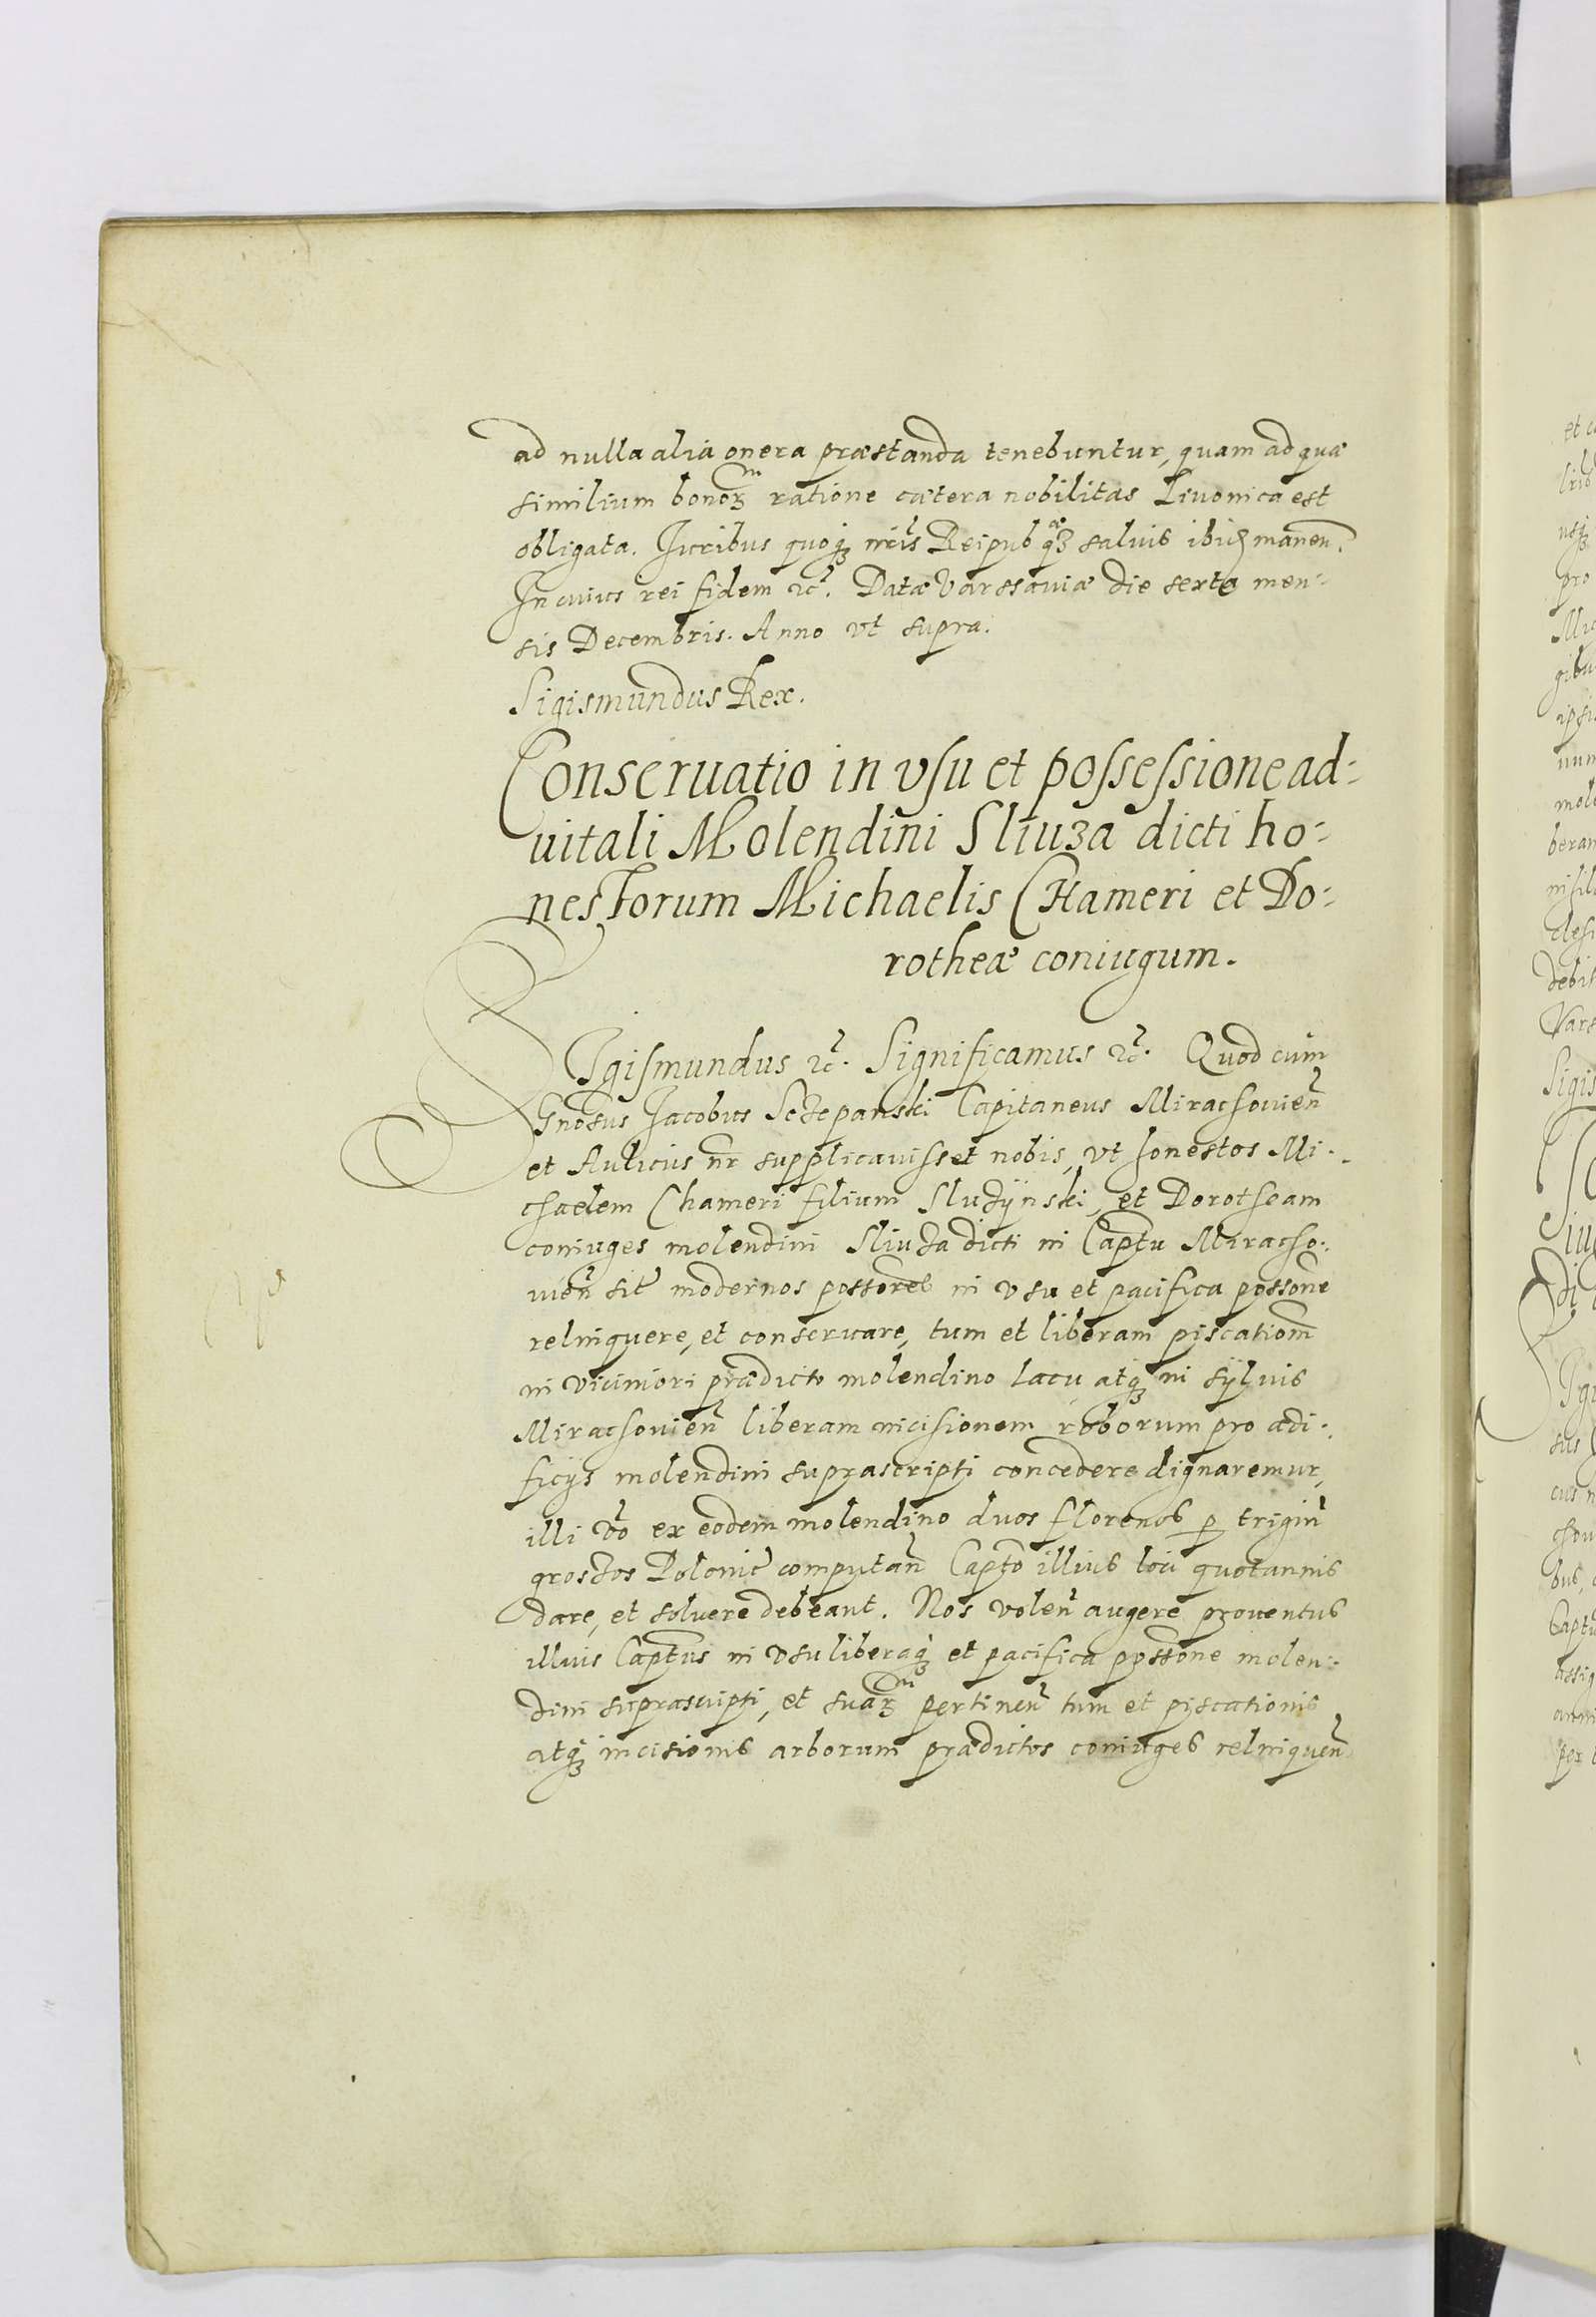 ad nulla alia onera præstanda tenebuntur, quam ad quæ
similium bonoꝝ ratione cætera nobilitas Livonica est
obligata. Iuribus quoqꝫ nris Reipub qꝫ salvis ibid manen.
In cuius rei fidem ꝛc. Datæ Varssaviæ die sexta men-
sis Decembris. Anno vt supra.
Sigismundus Rex.
Conseruatio in vsu et possessione ad-
uitali Molendini Sliuza dicti ho-
nestorum Michaelis CHameri et Do-
rotheæ coniugum.
SIgismundus ꝛc. Significamus ꝛc. Quod cum
Gnosus Jacobus Sczepanski Capitaneus Mirachovien
et Aulicus nr supplicauisset nobis, vt honestos Mi-
chaelem Chameri filium Sluzÿnski, et Dorotheam
coniuges molendini Sliuza dicti in Captu Miracho-
uien sit modernos possores in vsu et pacifica possone
relinquere, et conseruare, tum et liberam piscatiom
in viciniori prædicto molendino lacu atqꝫ in sÿluis
Mirachouien liberam incisionem roborum pro ædi-
ficijs molendini suprascripti concedere dignaremur,
illi vo ex eodem molendino duos florenos p trigin
groszos Polonic computan Capto illius loci quotannis
dare, et soluere debeant. Nos volen augere prouentus
illius Captus in vsu liberaqꝫ et pacifica possone molen-
dini suprascripti, et suaꝝ pertinen tum et piscationis
atqꝫ incisionis arborum prædictos coniuges relinquen